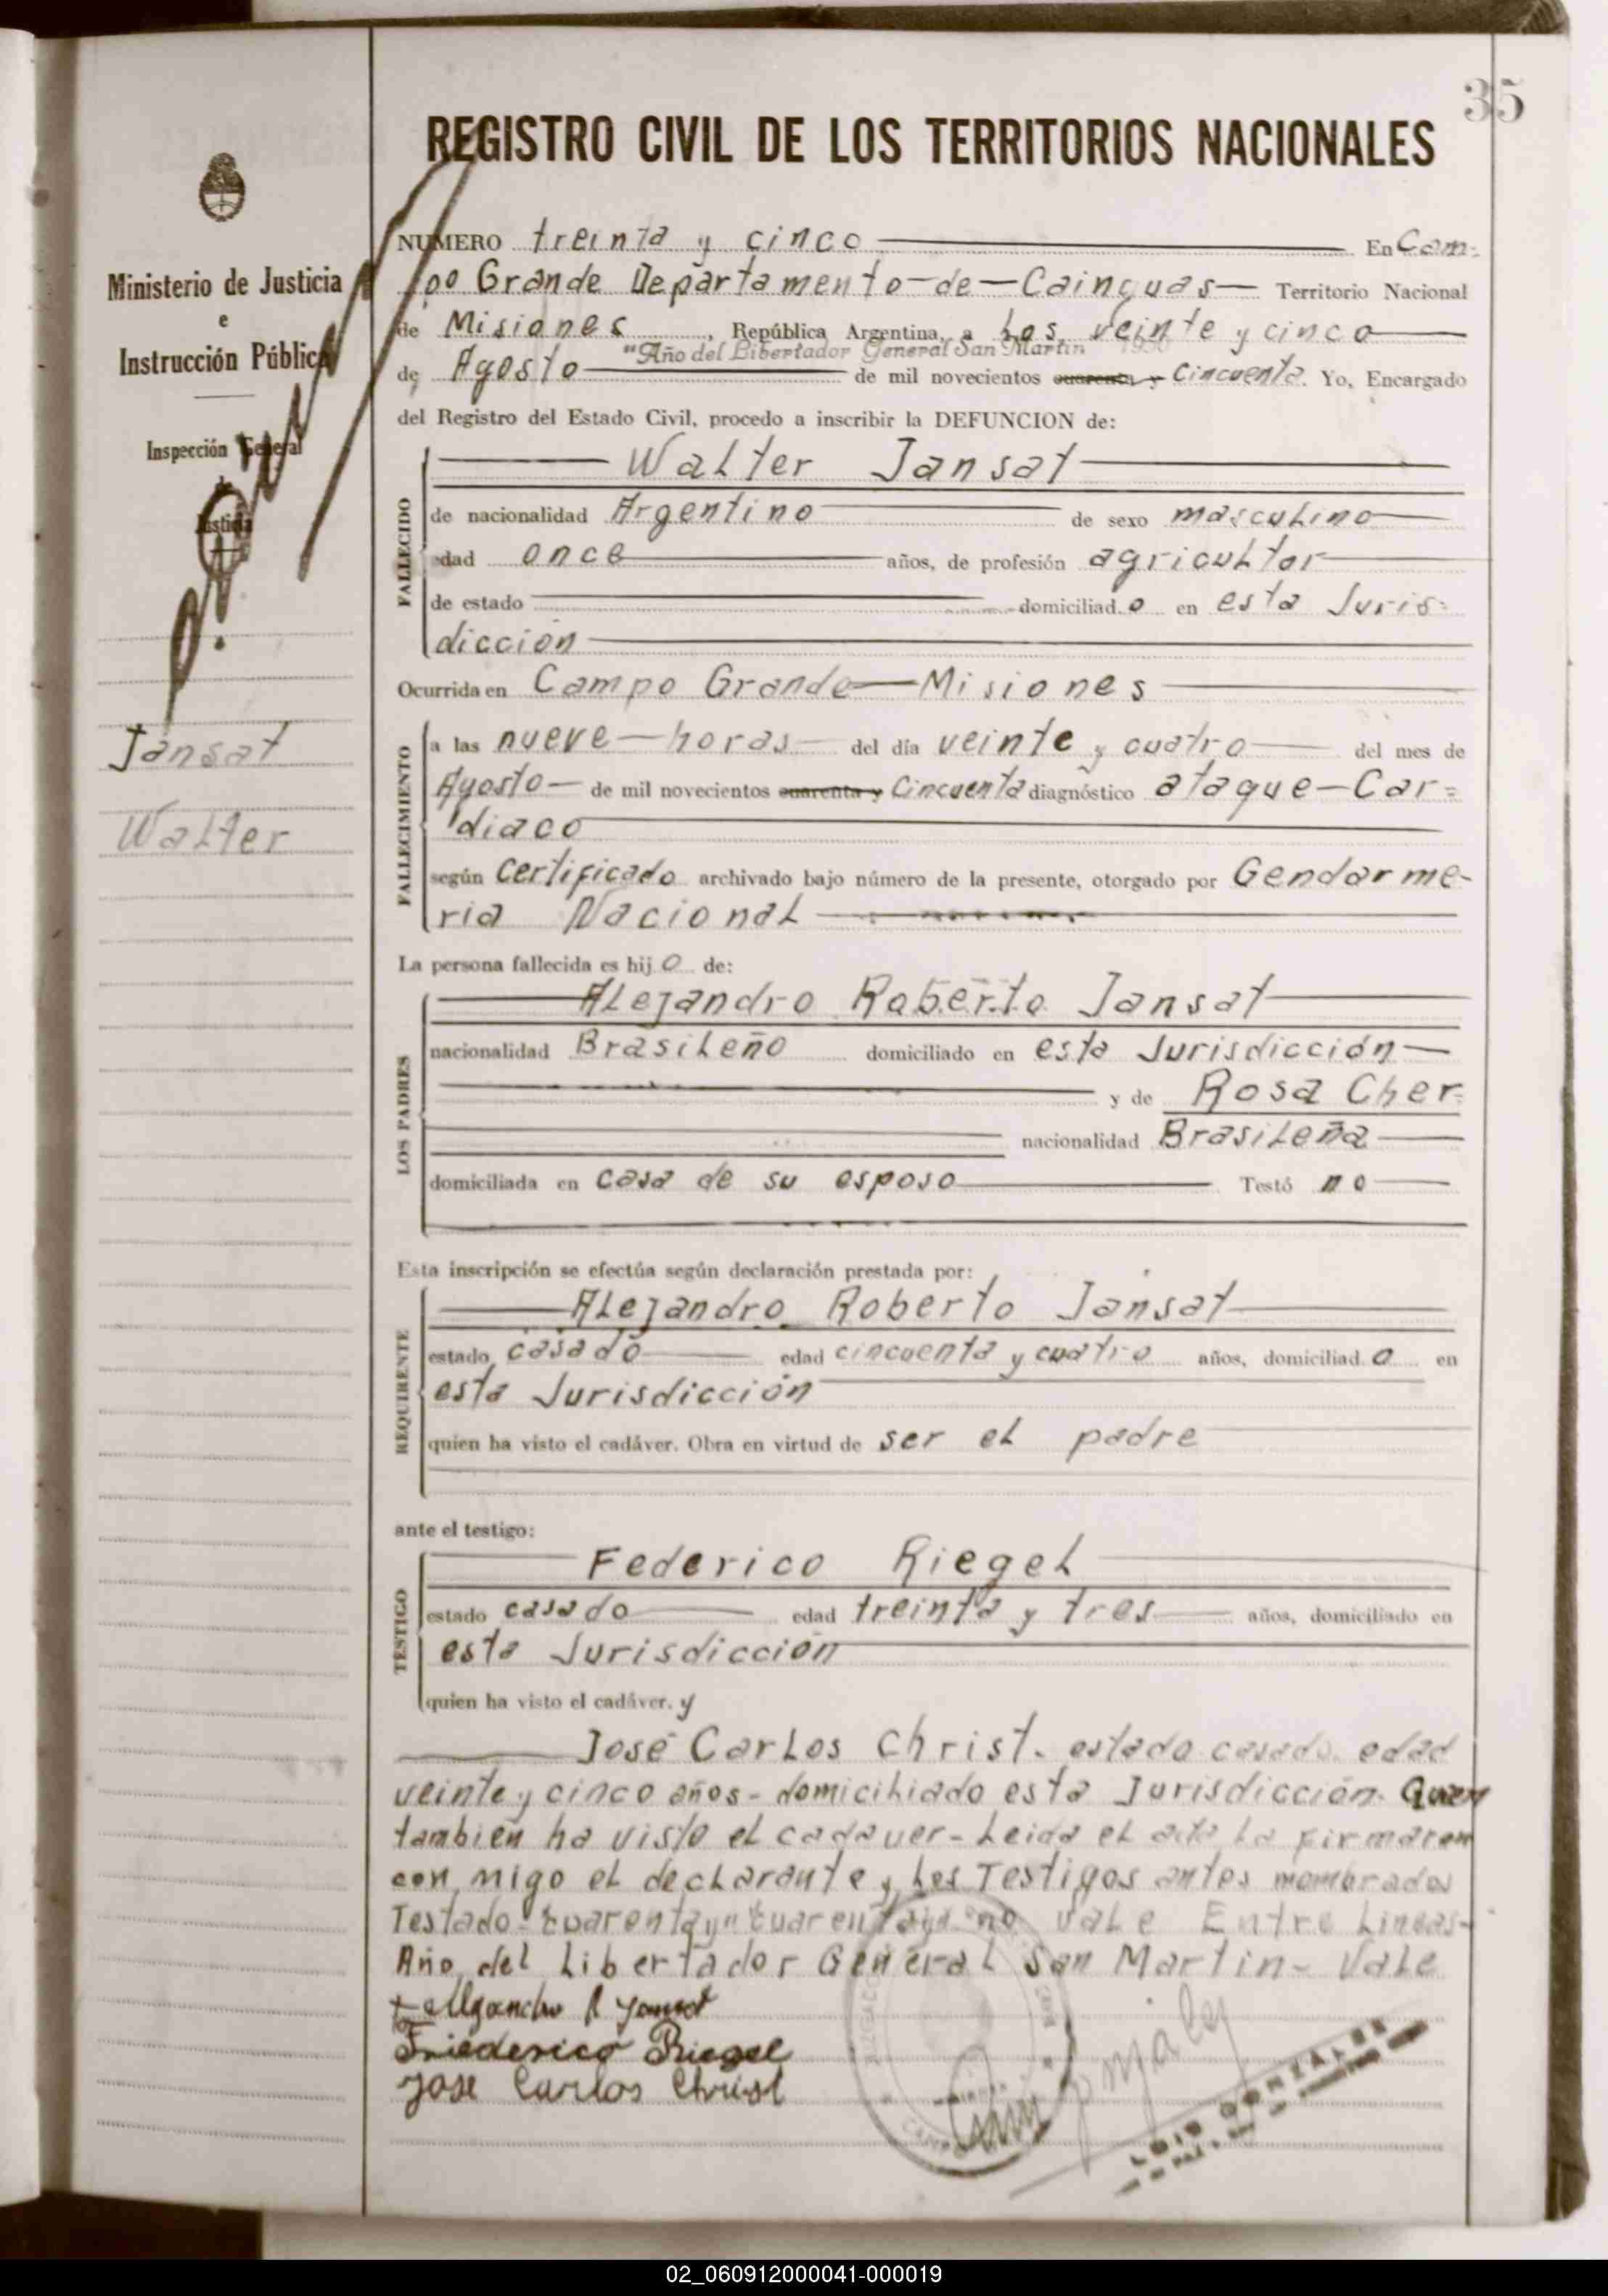 35
REGISTRO CIVIL DE LOS TERRITORIOS NACIONALES
Ministerio de Justicia
e
Instrucción Pública
Inspección General
de
Justicia
Jansat
Walter
NUMERO treinta y cinco En Cam=
po Grande Departamento de Cainguas Territorio Nacional
de Misiones, República Argentina, a Los veinte y cinco
"Año del Libertador General San Martin 1950
de Agosto de mil novecientos cuarenta y Cincuenta. Yo, Encargado
del Registro del Estado Civil, procedo a inscribir la DEFUNCION de:
Walter Jansat
FALLECIDO
de nacionalidad Argentino de sexo masculino
edad once años, de profesión agricultor
de estado domiciliado en esta Juris=
dicción
Ocurrida en Campo Grande Misiones
FALLECIMIENTO
a las nueve horas del día veinte y cuatro del mes de
Agosto de mil novecientos cuarenta y Cincuenta diagnóstico ataque Car=
diaco
según Certificado archivado bajo número de la presente, otorgado por Gendarme-
ria Nacional
La persona fallecida es hijo de:
Alejandro Roberto Jansat
LOS PADRES
nacionalidad Brasileño domiciliado en esta Jurisdicción
y de Rosa Cher=
nacionalidad Brasileña
domiciliada en casa de su esposo Testó no
Esta inscripción se efectúa según declaración prestada por:
Alejandro Roberto Jansat
REQUIRENTE
estado casado edad cincuenta y cuatro años, domiciliado en
esta Jurisdicción
quien ha visto el cadáver. Obra en virtud de ser el padre
ante el testigo:
Federico Riegel
TESTIGO
estado casado edad treinta y tres años, domiciliado en
esta Jurisdicción
quien ha visto el cadáver. y
José Carlos Christ. estado casado. edad
veinte y cinco años - domiciliado esta Jurisdicción. Quien
también ha visto el cadaver - Leida el acta La firmaron
con migo el declarante y Los Testigos antes mombrados
Testado - cuarenta y " cuarenta y " no vale Entre Lineas -
Año del Libertador General San Martin - Vale
Alejandro R Jansat
Friederico Riegel
Jose Carlos Christ
LUIS GONZALES
02_060912000041-000019